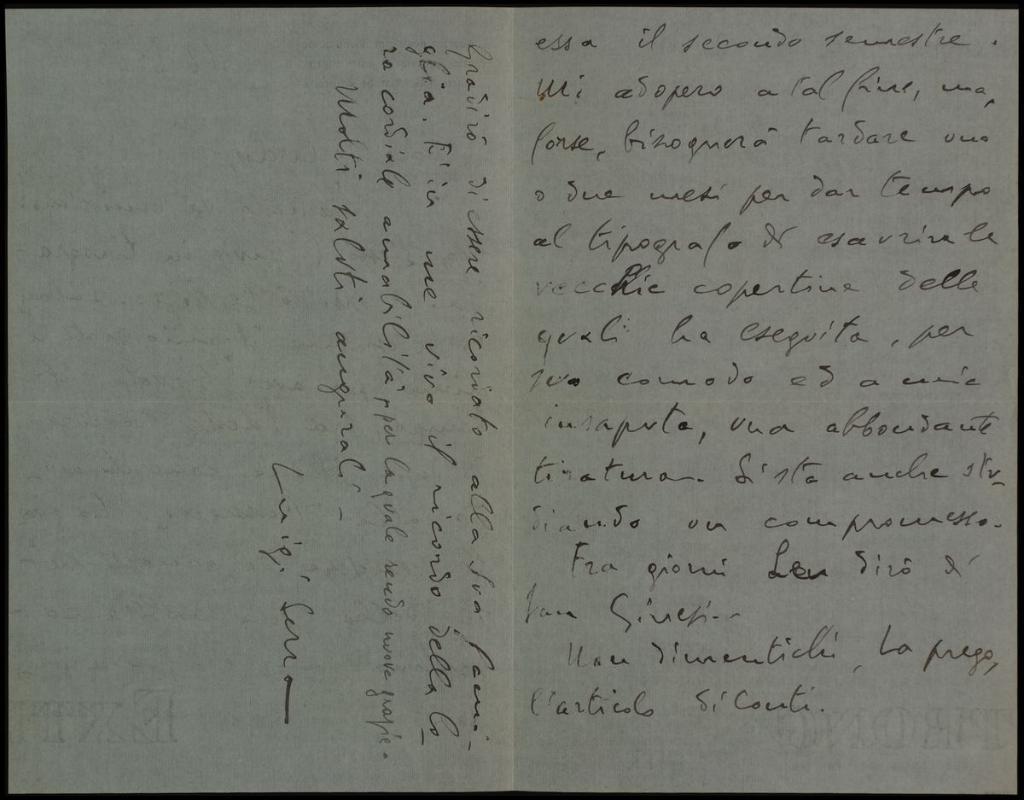 essa il secondo semestre.
Mi adopero a tal fine, ma,
forse, bisognerà tardare uno
o due mesi per dar tempo
al tipografo di esaurire le
vecchie copertine delle
quali ha eseguita, per
suo comodo ed a mia
insaputa, una abbondante
tiratura. Si sta anche stu-
diando un compromesso.
Fra giorni Le dirò di
San Ginesio.
Non dimentichi, La prego,
l'articolo di Conti.
Gradirò di essere ricordato alla Sua fami-
glia. È in me vivo il ricordo della lo-
ro cordiale amabilità, per la quale rendo nuove grazie.
Molti saluti augurali -
Luigi Serra